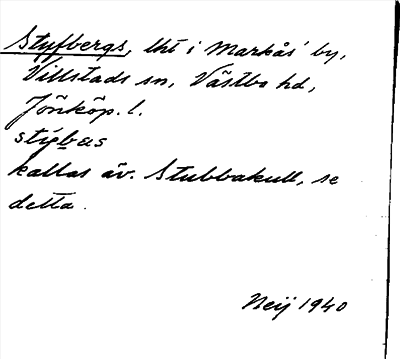 Styfbergs, lht i Markås by,
Villstads sn, Västbo hd,
Jönköp. l.
stybas
kallas äv. Stubbakull, se
detta.
Neij 1940